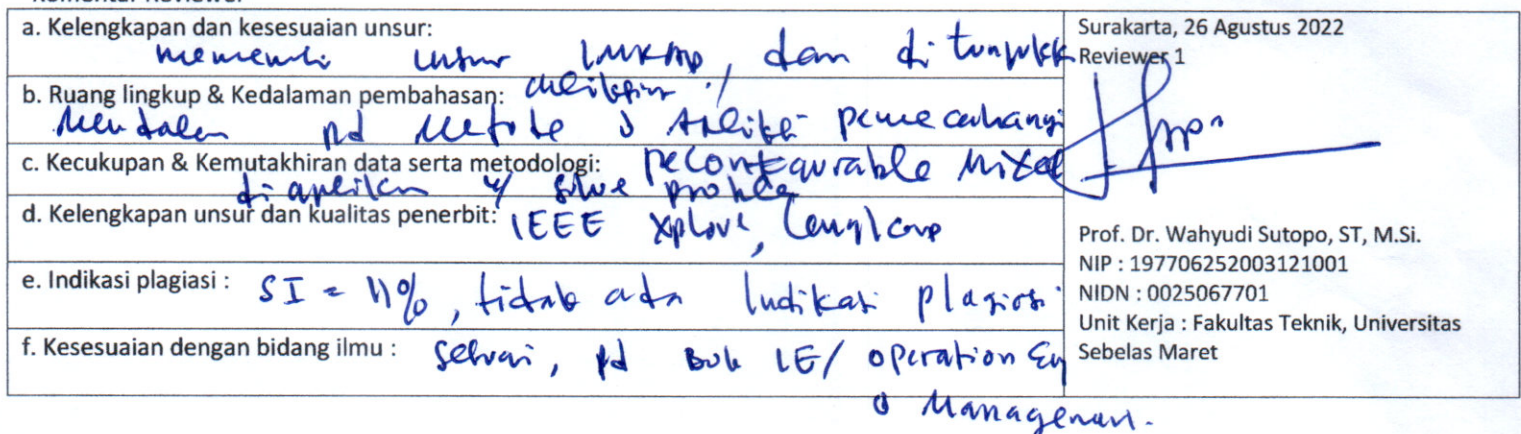 Komentar Reviewer
a. Kelengkapan dan kesesuaian unsur:
memenuhi unsur IMRAD, dan
b. Ruang lingkup & Kedalaman pembahasan:
Mendalam pd metode
c. Kecukupan & Kemutakhiran data serta metodologi: reconfigurable mixed
solve problem
d. Kelengkapan unsur dan kualitas penerbit: IEEE Xplore, Lengkap
e. Indikasi plagiasi : SI = 11%, tidak ada Indikasi plagiasi
f. Kesesuaian dengan bidang ilmu : sesuai, pd IE/ operation Eng
& Management.
Surakarta, 26 Agustus 2022
Reviewer 1
Prof. Dr. Wahyudi Sutopo, ST, M.Si.
NIP : 197706252003121001
NIDN : 0025067701
Unit Kerja : Fakultas Teknik, Universitas
Sebelas Maret